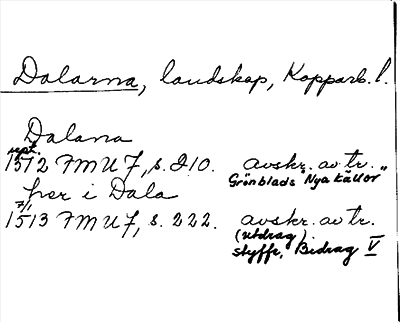 Dalarna, landskap, Kopparb. l.
Dalarna
sept.
1512 FMU 7, s. 210. avskr. av tr.
Grönblads "Nya källor"
per i Dala
7/1
1513 FMU 7, s. 222. avskr. av tr.
(utdrag).
Styffe, Bidrag V